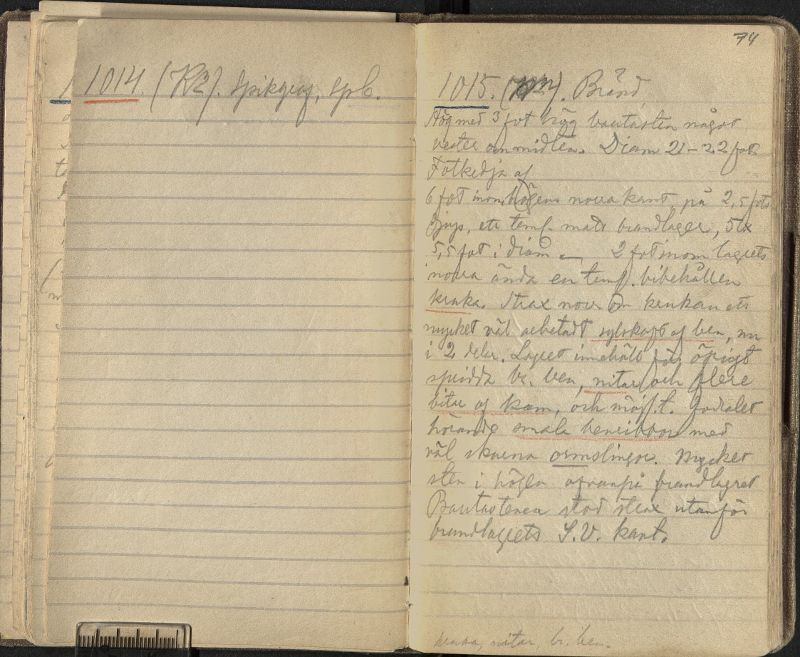 1014. (K2). Spikgrag, Spb.
74
1015. Bränd
Hög med 3 fot hög bautasten något
vester om midten. Diam 21-22 fot.
Fotkedja af
6 fot inom högens norra kant, på 2,5 fots
djup, ett temf. matt brandlager, 5 à
5,5 fot i diam. 2 fot inom lagrets
norra ända en temf. bibehållen
kruka. Strax norr om krukan ett
mycket väl arbetadt sylskaft af ben, nu
i 2 delar. Lagret innehöll för öfrigt
spridda br. ben, nitar och flere
bitar af kam, och möjl. t. fodralet
hörande smala benribbor med
väl skurna ormslingor. Mycket
sten i högen ofvanpå brandlagret
Bautastenen stod strax utanför
brandlagrets S.V. kant.
kruka, nitar, br. ben.